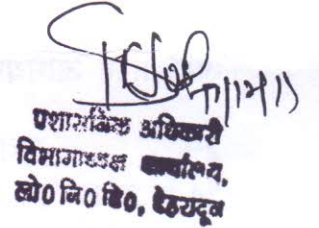 प्रशासनिक अधिकारी
विभागाध्यक्ष कार्यालय,
लो0 नि0 वि0, देहरादून